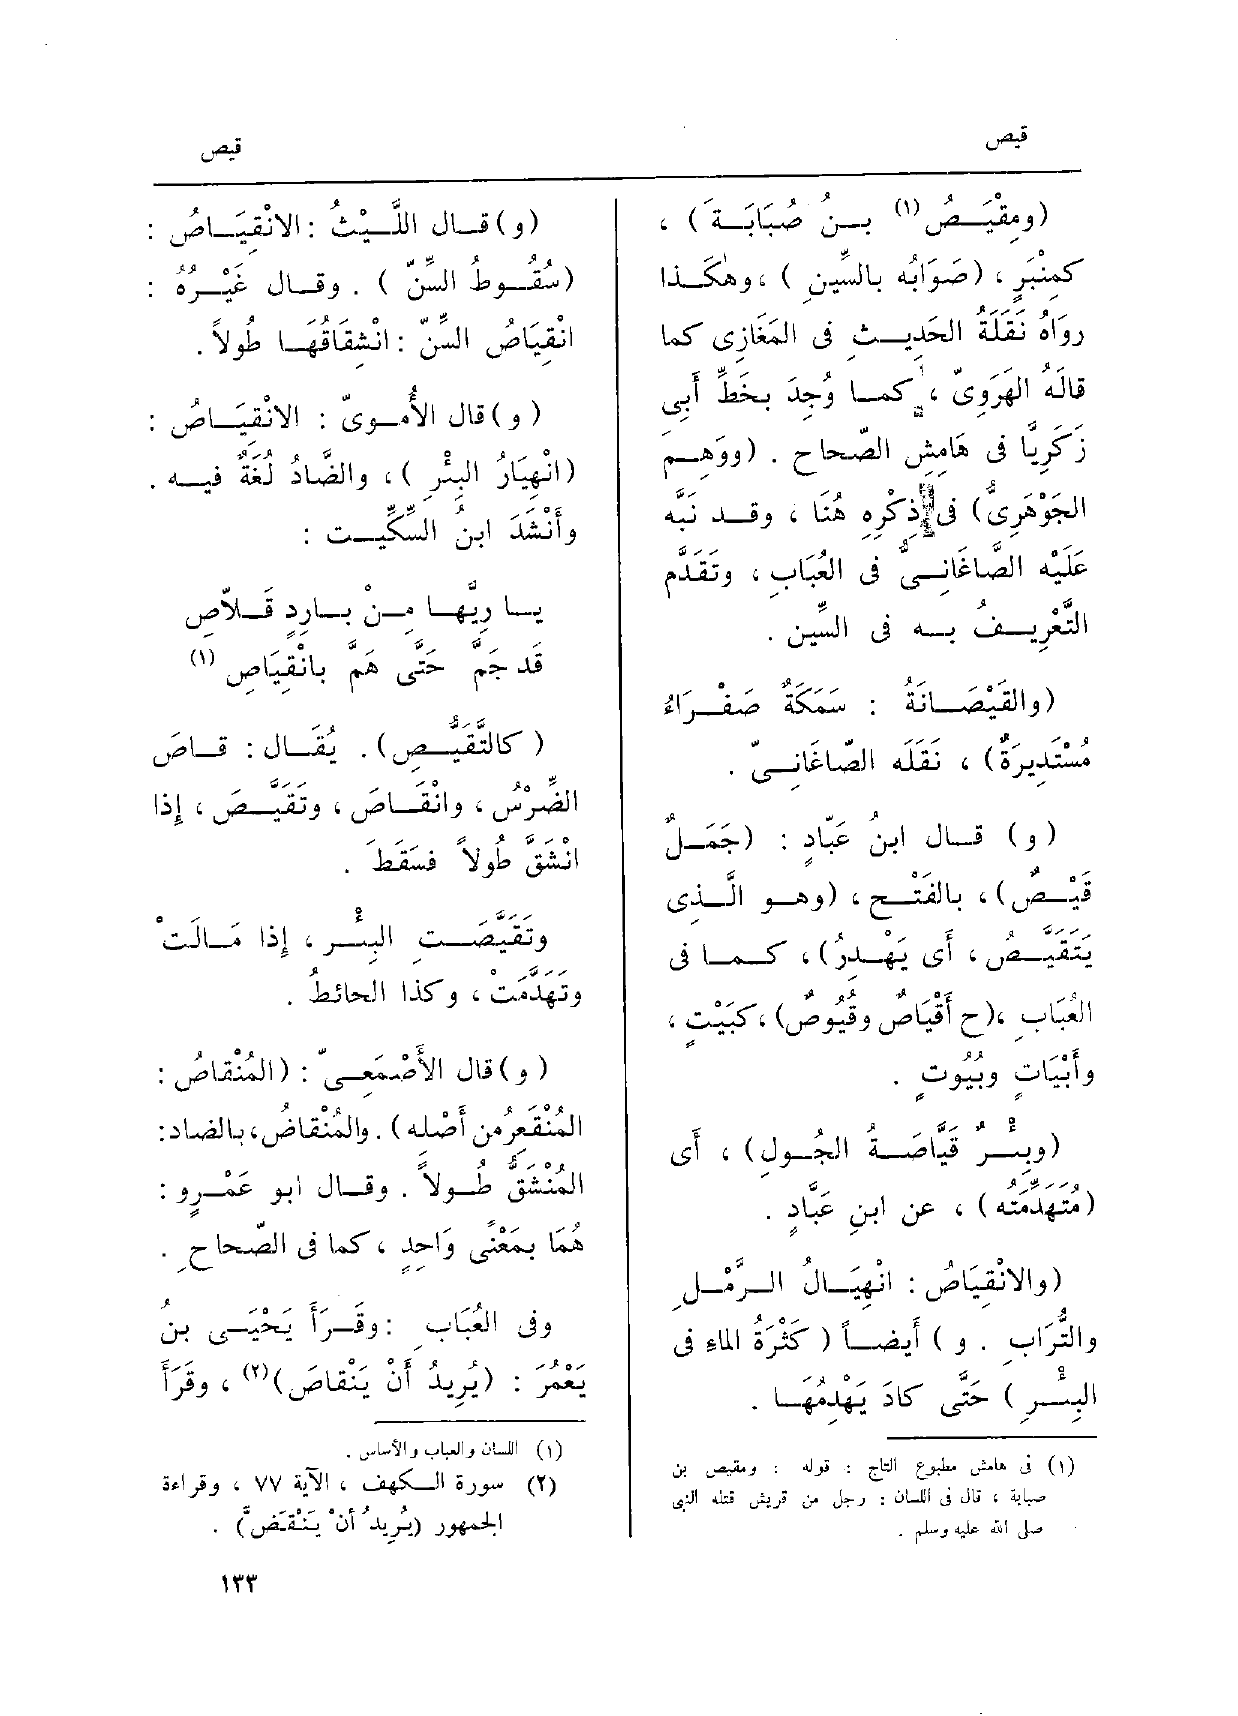 قيص
قيص
(ومِقْيَـصُ(١) بـنُ صُبَابَـةَ) ،
كمِنْبَرٍ ، (صَوَابُه بالسِّينِ ) ، وهٰكَـذا
رواهُ نَقَلَةُ الحَدِيـثِ فى المَغَازِى كما
قالَهُ الهَرَوِىّ ، كمـا وُجِدَ بخَطِّ أَبِى
زَكَرِيَّا فى هَامِشِ الصّحاحِ . (ووَهِـمَ
الجَوْهَرِىُّ) فى ذِكْرِه هُنَا ، وقـد نَبَّه
عَلَيْه الصَّاغَانِـىُّ فى العُبَابِ ، وتَقَدَّم
التَّعْرِيـفُ بـه فى السِّين .
(والقَيْصَـانَةُ : سَمَكَةٌ صَفْـرَاءُ
مُسْتَدِيرَةٌ) ، نَقَلَه الصّاغَانِـىّ .
( و) قـال ابنُ عَبّادٍ : (جَمَـلٌ
قَيْـصٌ) ، بالفَتْـحِ ، (وهـو الَّـذِى
يَتَقَيَّـصُ ، أَى يَهْـدِرُ) ، كـمـا فى
العُبَابِ ، (ج أَقْيَاصٌ وقُيُوصٌ) ، كبَيْتٍ ،
وأَبْيَاتٍ وبُيُوتٍ .
(وبِئْـر قَيَّاصَـةُ الجُـولِ) ، أَى
(مُتَهَدِّمَتُه) ، عن ابنِ عَبَّادٍ .
(والانْقِيَاصُ : انْهِيَـالُ الـرَّمْـلِ
والتُّرَابِ . و ) أَيضـاً ( كَثْرَةُ الماءِ فى
البِئْـرِ ) حَتَّى كادَ يَهْدِمُهَـا .
(١) فى هامش مطبوع التاج : قوله : ومقيص بن
صبابة ، قال فى اللسان : رجل من قريش قتله النبى
صلى الله عليه وسلم .
(و) قـال اللَّـيْثُ : الانْقِيَـاصُ :
(سُقُـوطُ السِّنّ ) . وقـال غَيْـرُهُ :
انْقِيَاصُ السِّنّ : انْشِقَاقُهَـا طُولاً .
(و) قال الأُمَـوِىّ : الانْقِيَـاصُ :
(انْهِيَارُ البِئْرِ ) ، والضَّادُ لُغَةٌ فيـه .
وأَنْشَدَ ابنُ السِّكِّيـت :
يـا رِيَّهـا مِـنْ بـارِدٍ قَـلاّصِ
قَد جَمَّ حَتَّى هَمَّ بانْقِيَاصِ (١)
( كالتَّقَيُّـصِ) . يُقَـال : قـاصَ
الضِّرْسُ ، وانْقَـاصَ ، وتَقَيَّـصَ ، إِذا
انْشَقَّ طُولاً فسَقَطَ .
وتَقَيَّصَـتِ البِئْـر ، إِذا مَـالَتْ
وتَهَدَّمَتْ ، وكذا الحائطُ .
( و) قال الأَصْمَعِـىّ : (المُنْقاصُ :
المُنْقَعِرُ من أَصْله) . والمُنْقاضُ ، بالضاد :
المُنْشَقُّ طُـولاً . وقـال ابو عَمْـرٍو :
هُمَا بمَعْنًى وَاحِدٍ ، كما فى الصّحاحِ .
وفى العُبَابِ : وقَـرَأَ يَحْيَـى بنُ
يَعْمُرَ : (يُرِيدُ أَنْ يَنْقاصَ)(٢) ، وقَرَأَ
(١) اللسان والعباب والأساس .
(٢) سورة الـكهف ، الآية ٧٧ ، وقراءة
الجمهور (يُرِيدُ أَنْ يَنْقَضَّ) .
١٣٣